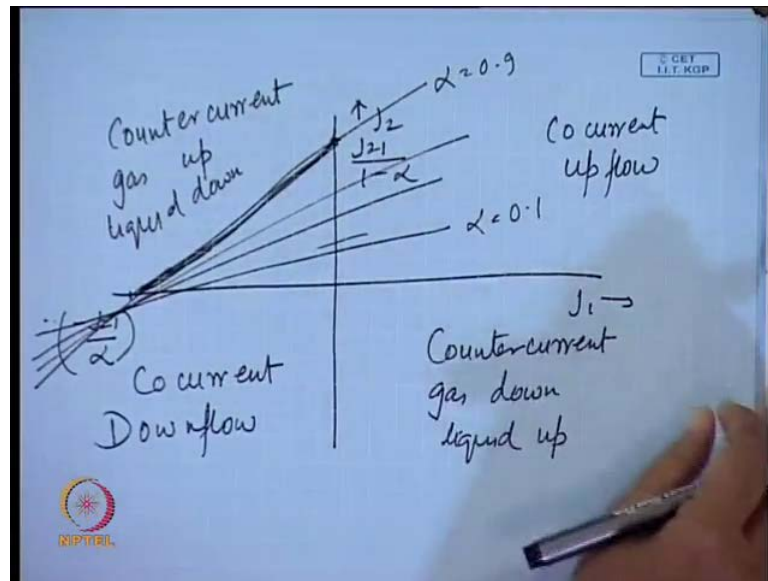 © CET
I.I.T. KGP
Countercurrent
gas up
liquid down
↑ J2
J21
1-α
α=0.9
Cocurrent
up flow
α=0.1
J1 →
Cocurrent
Downflow
Countercurrent
gas down
liquid up
NPTEL